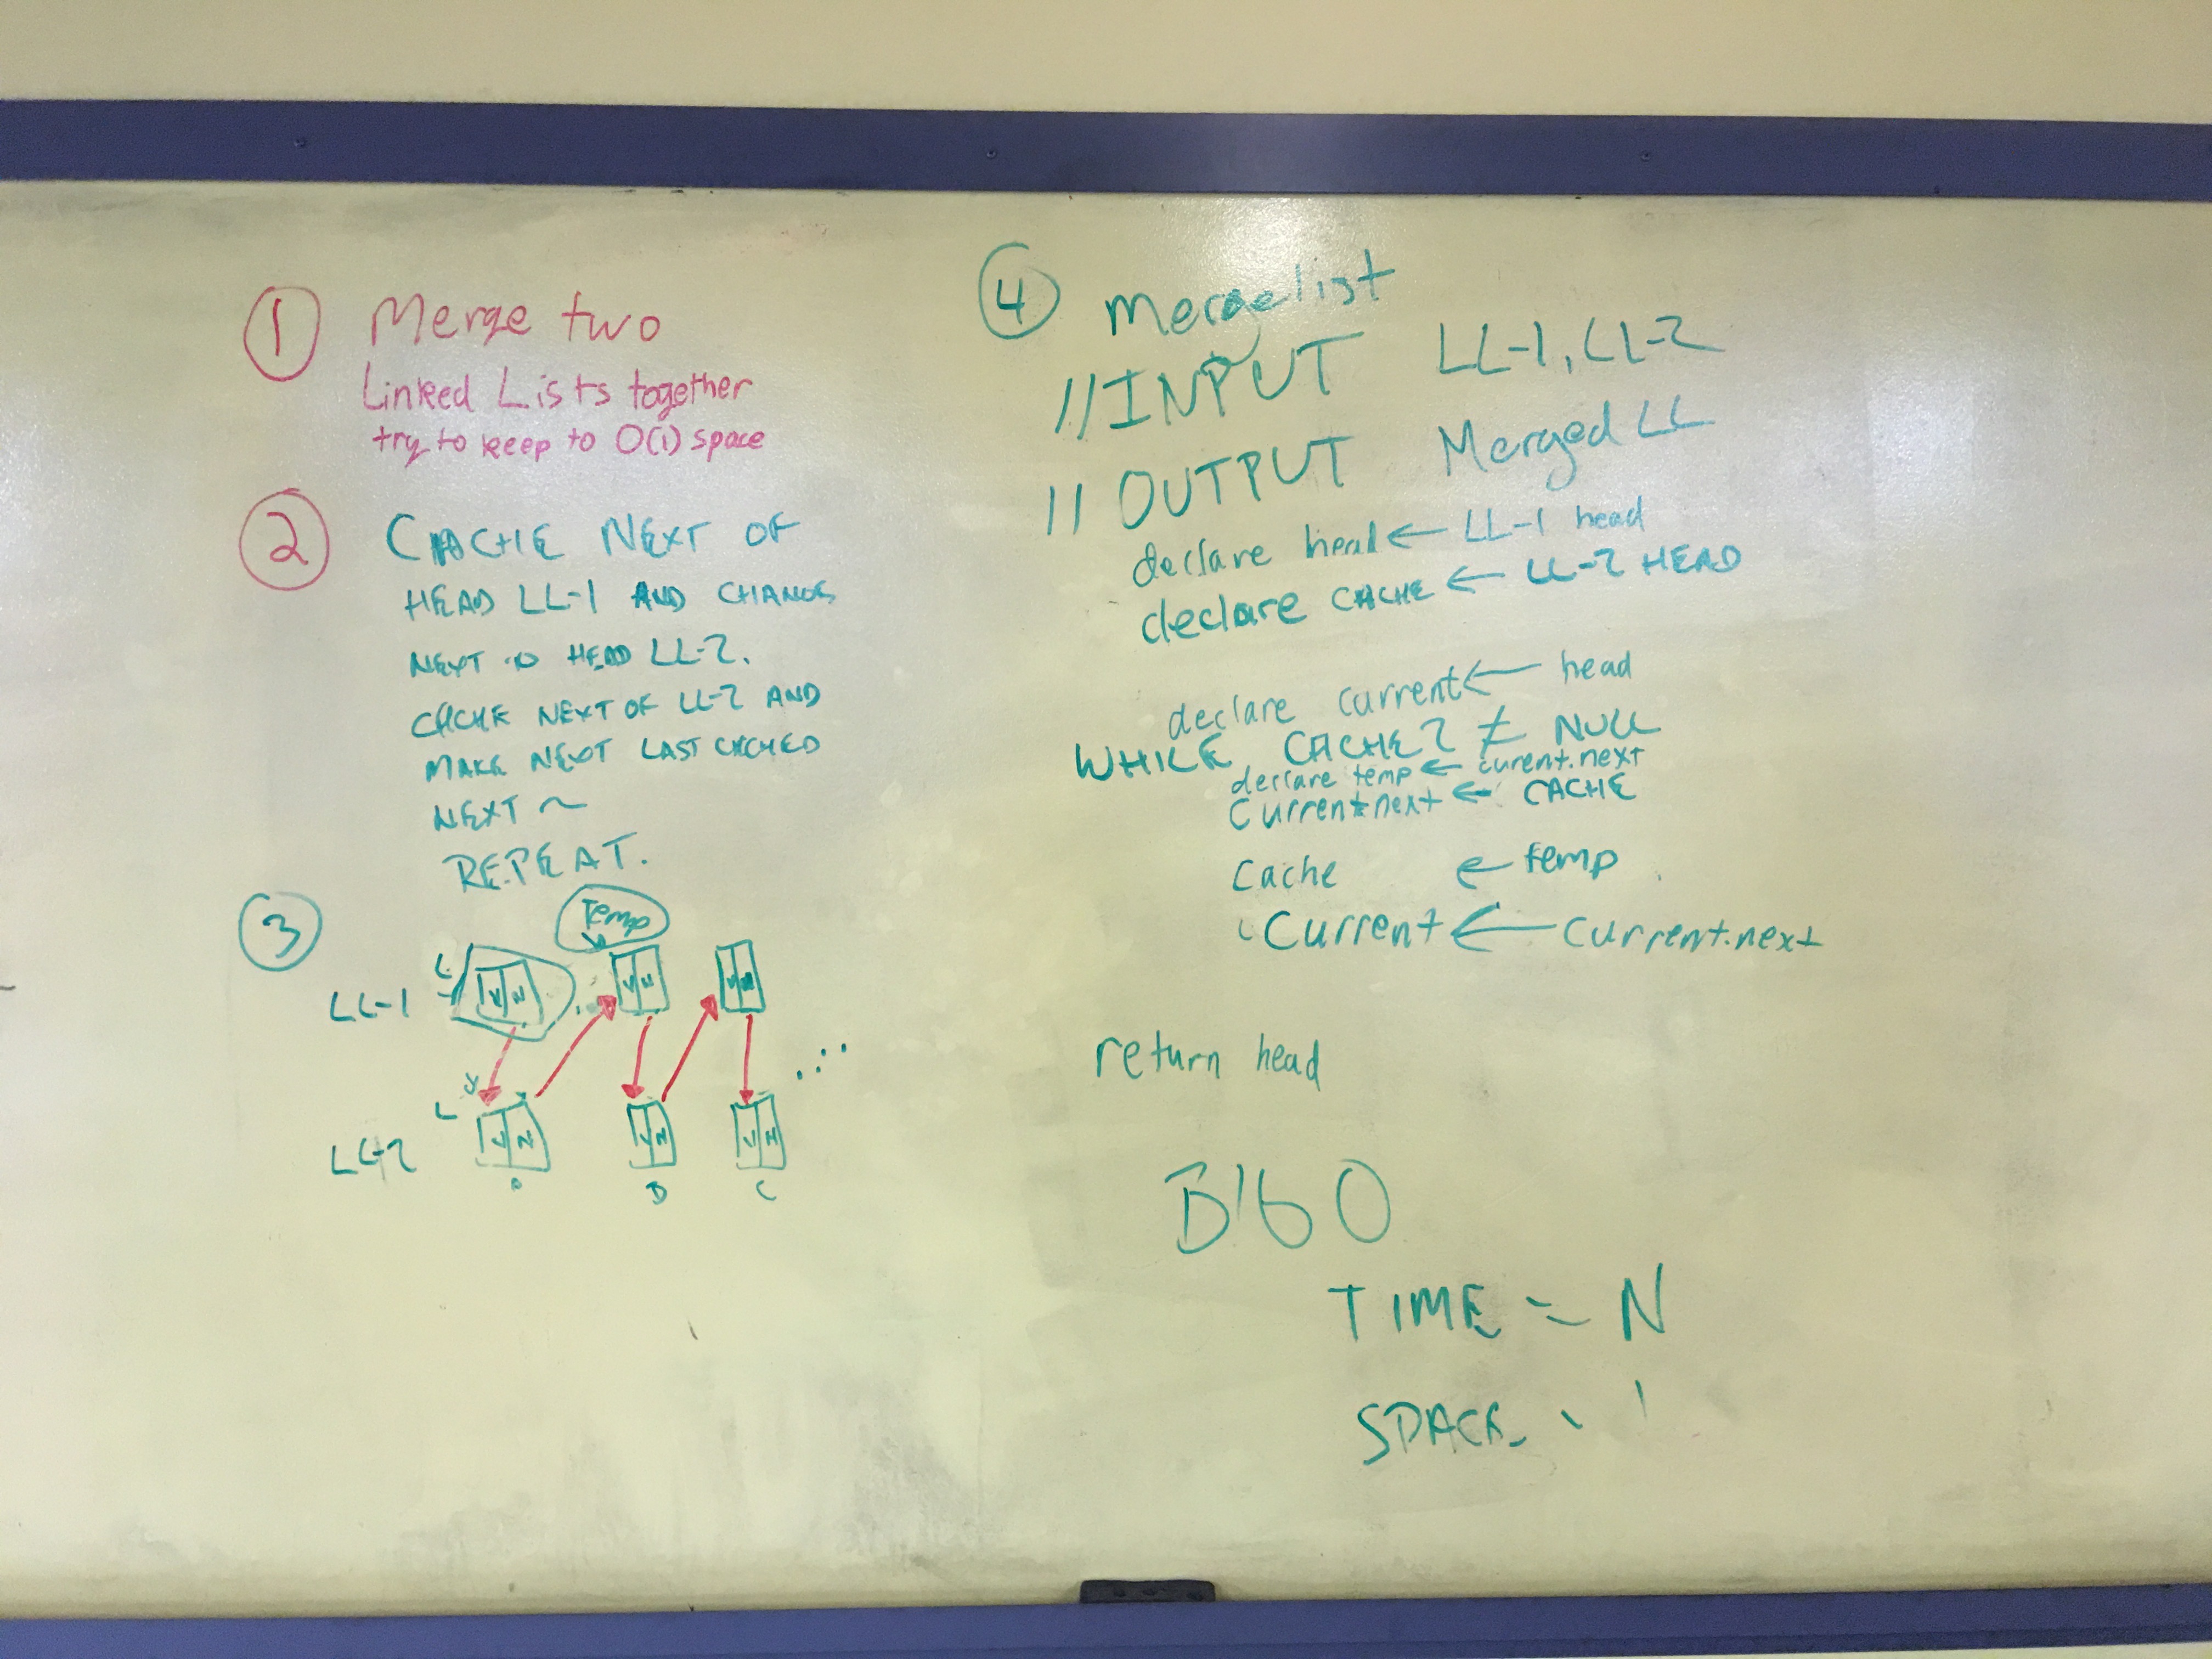 ① Merge two
Linked Lists together
try to keep to O(1) space
② CACHE NEXT OF
HEAD LL-1 AND CHANGE
NEXT HEAD LL-2.
CACHE NEXT OF LL-2 AND
MAKE NEXT LAST CACHED
NEXT ~
REPEAT.
③
Temp
LL-1
V N V N V N
LL-2
V N V N V N
B C
④ mergelist
//INPUT LL-1, LL-2
// OUTPUT Merged LL
declare head ← LL-1 head
declare CACHE ← LL-2 HEAD
declare current ← head
WHILE CACHE2 ≠ NULL
declare temp ← curent.next
Current.next ← CACHE
Cache ← temp
Current ← Current.next
return head
BIG O
TIME = N
SPACE - 1